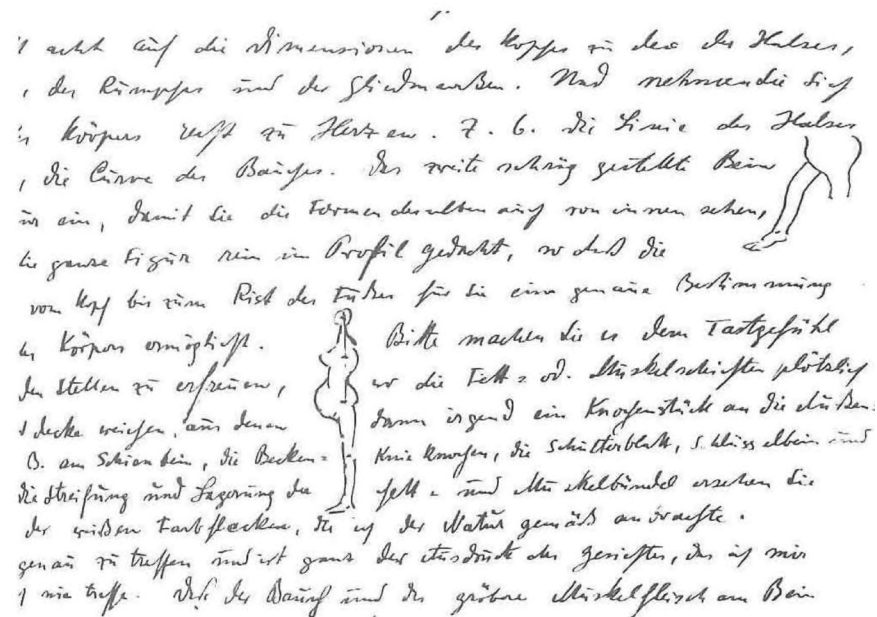 acht auf die Dimensionen des Kopfes zu der des Halses,
, des Rumpfes und der Gliedmaaßen. Und nehmen die Sich
Körpers recht zu Herzen. Z. b. die Linie des Halses
, die Curve des Bauches. Das zweite schräg gestellte Bein
ein, damit Sie die Formen desselben auch von innen sehen,
die ganze Figur rein im Profil gedacht, so daß die
vom Kopf bis zum Rist des Fußes für Sie eine genaue Bestimmung
Körpers ermöglicht. Bitte machen Sie es dem Tastgefühl
den Stellen zu erfreuen, wo die Fett = od. Muskelschichten plötzlich
decke weichen, aus denen dann irgend ein Knochenstück an die Außen=
B. am Schienbein, die Becken= Knie Knochen, die Schulterblatt, Schlüsselbein und
die Streifung und Lagerung der Fett = und Muskelbündel ersehen Sie
der weißen Farbflecken, die ich der Natur gemäß anbrachte.
genau zu treffen und ist ganz der Ausdruck des Gesichtes, das ich mir
nie treffe. Daß der Bauch und das gröbere Muskelfleisch am Bein